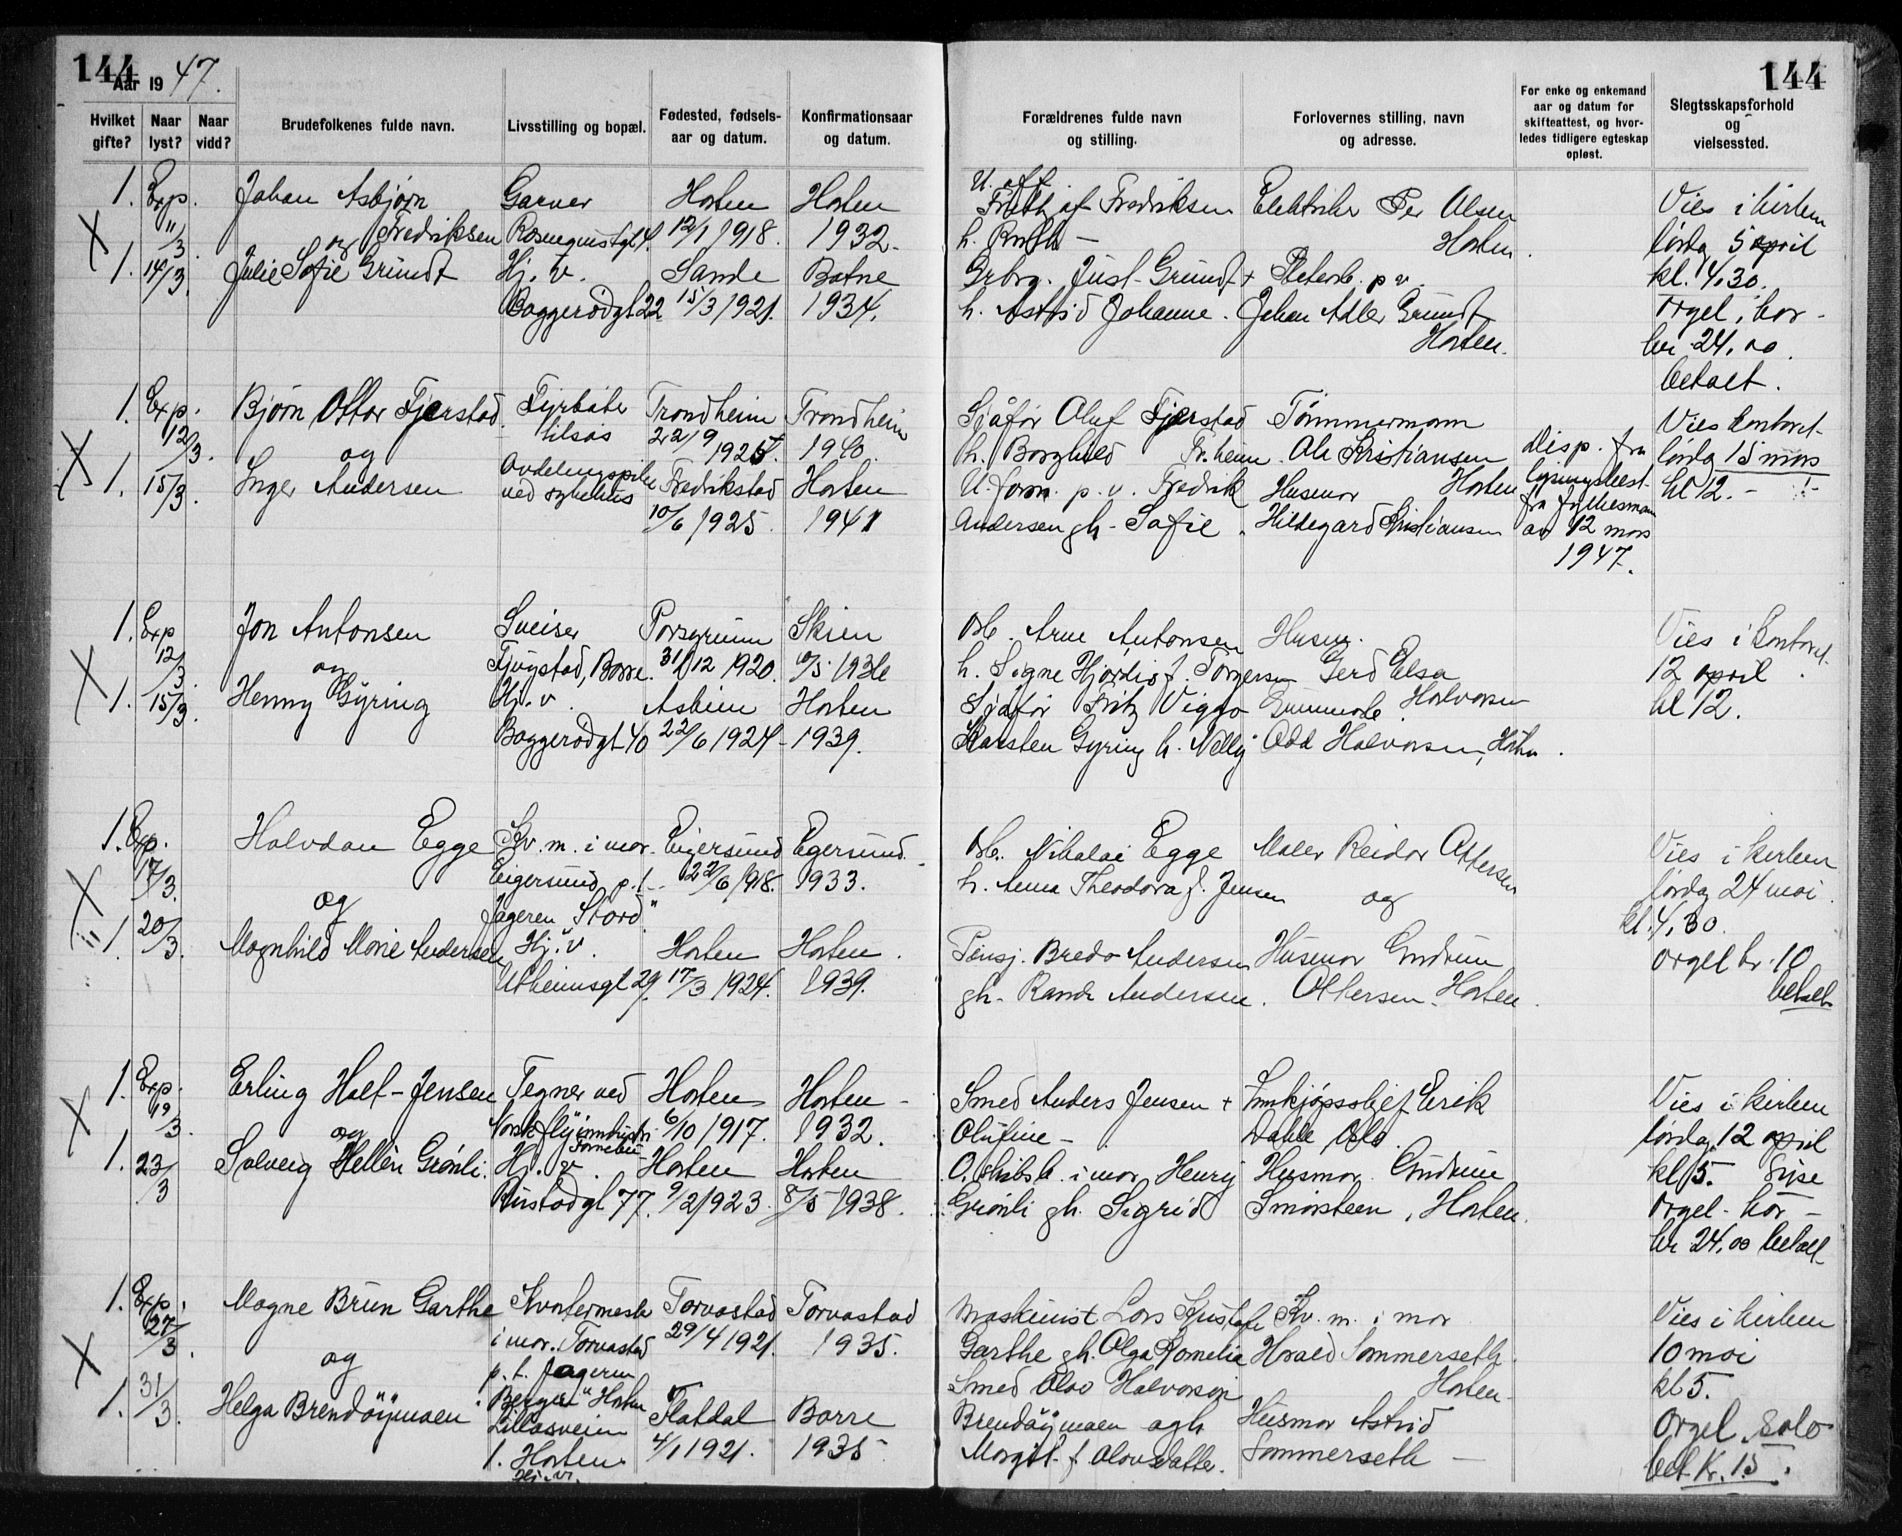 144
Aar 1947.
Hvilket gifte?
Naar lyst?
Naar vidd?
Brudefolkenes fulde navn.
Livsstilling og bopæl.
Fødested, fødsels-
aar og datum.
Konfirmationsaar
og datum.
1. Exp. Johan Asbjørn Garver Horten Horten
11/3 Fredriksen Rosenquistgt 4. 12/1 1918. 1932.
og
1. 14/3. Julie Sofie Grundt Hj. v. Sande Botne
Baggerødgt 22. 15/3 1921. 1934.
1. Exp. Bjørn Ottar Fjerstad Fyrbøter Trondheim Trondheim
12/3. tilsøs 22/9 1924. 1940.
og Avdelingspike
1. 15/3. Inger Andersen ved sykehus Fredrikstad Horten
10/6 1925. 1941
1. Exp Jon Antonsen Sveiser Porsgrunn Skien
12/3. og Fjugstad, Borre. 31/12 1920. 1936
1. 15/3. Henny Gyring Hj. v. Askim Horten
Baggerødgt 40 22/6 1924. 1939.
1. Exp. Halvdan Egge Kv. m. i mar. Eigersund Egersund
17/3. Eigersund p.t. 22/6 1918. 1933.
og Jageren "Stord"
1. 20/3. Magnhild Marie Andersen Hj. v. Horten Horten.
Utheimsgt 29. 17/3 1924. 1939.
1. Exp. Erling Holt-Jensen Tegner ved Horten Horten
19/3. og Norsk flyindustri 6/10 1917. 1932.
Fornebu
1. 23/3 Solveig Hellen Grønli. Hj. v. Horten Horten
Rustadgt 77. 9/2 1923. 8/5 1938.
1. Exp. Magne Brun Garthe Kvartermester Torvastad Torvastad
27/3. i mar. Torvastad 29/4 1921. 1935.
og p. t. Jageren
1. 31/3. Helga Brendøymoen "Bergen" Horten Flatdal Borre
Lillåsveien 4/1 1921. 1935
1. Horten
Hj. v.
144
Forældrenes fulde navn
og stilling.
Forlovernes stilling, navn
og adresse.
For enke og enkemand
aar og datum for
skifteattest, og hvor-
ledes tidligere egteskap
opløst.
Slegtsskapsforhold
og
vielsessted.
Fredriksen Elektriker Per Olsen Vies i kirken
h. Ruth — Horten. lørdag 5 april
Grbrg. Just Grundt + p v. kl. 4.30.
h. Astrid Johanne. Johan Adler Grundt orgel, kor
Horten. kr 24.00
betalt.
Sjåfør Oluf Fjerstad Tømmermann Vies kontoret
h. Borghild Tr.heim. Ole Kristiansen Disp. fra lørdag 15 mars
U. form. p. v. Fredrik Husmor Horten lysningsattest kl 12.
Andersen gh. Sofie. Hildegard Kristiansen fra fylkesmann
av 12 mars
1947.
Arb. Arne Antonsen Husm. Vies i kontoret.
h. Signe Hjørdis f. Torgersen Gerd Elsa 12 april.
Sjåfør Fritz Viggo Gunnerle Halvorsen kl 12.
Karsten Gyring h. Nelly Odd Halvorsen, Horten.
Arb. Nikolai Egge Maler Reidar Ottersen Vies i kirken
h. Anna Theodora f. Jensen og lørdag 24 mai.
kl. 4,30.
Pensj. Bredo Andersen Husmor Gudrun orgel kr. 10
gh. Randi Andersen. Ottersen. Horten. betalt
Smed Anders Jensen + Innkjøpssjef Erik Vies i kirken
Olufine — Dahle Oslo. lørdag 12 april
i mar. Henry Husmor Gudrun kl 5.
Grønli gh. Sigrid Smørsteen, Horten. orgel. kor —
kr 24.00 betalt
Maskinist Lars Gustav Kv. m. i mar Vies i kirken
Garthe gh. Olga Kornelia Harald Sommerseth. 10 mai
Smed Olav Halvorson Horten. kl 5.
Brendøymoen agh Husmor Astrid Orgel, solo
Margit f. Olavsdatter. Sommerseth — bet. Kr. 15.